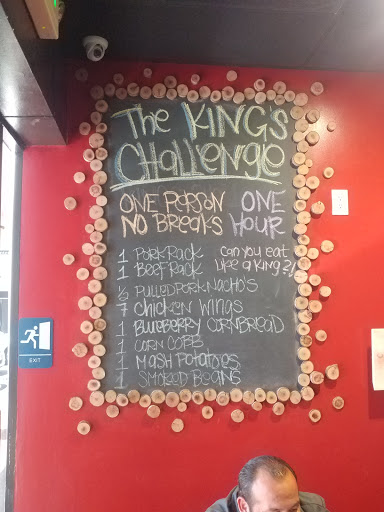 The KINGS
Challenge
ONE PERSON ONE
NO BReaKS HOUR
1 PORK RACK Can you eat
1 BEEF RACK like a King?!
½ PULLED PORK NACHO'S
7 Chicken Wings
1 BLUEBERRY CORNBREAD
1 CORN COBB
1 MASH POTATOES
1 SMOKED BEANS
EXIT